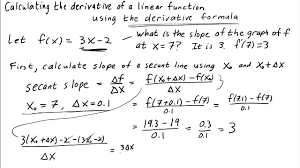 Calculating the derivative of a linear function
using the derivative formula
Let f(x) = 3x-2 ← what is the slope of the graph of f
at x=7? It is 3. f'(7)=3
First, calculate slope of a secant line using x₀ and x₀+Δx
secant slope = Δf/Δx = (f(x₀+Δx)-f(x₀))/Δx
x₀ = 7, Δx = 0.1 = (f(7+0.1)-f(7))/0.1 = (f(7.1)-f(7))/0.1
= (19.3-19)/0.1 = 0.3/0.1 = 3
(3(x₀+Δx)-2-(3x₀-2))/Δx = 3Δx